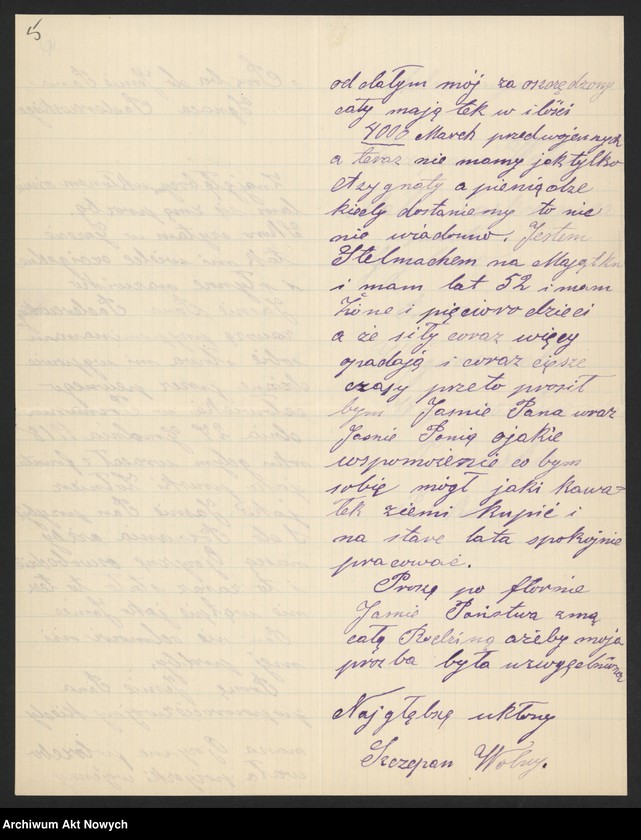 5
od dałym mój za oszczędzony
cały mają tek w ilości
4000 March przedwojennych
a teraz nie mamy jak tylko
Asygnaty a pieniądze
kiedy dostaniemy to nic
nie wiadomo. Jestem
Stelmachem na Majątku
i mam lat 52 i mam
Żone i pięcioro dzieci
a że siły coraz więcy
opadają i coraz cięsze
czasy przeto prosił
bym Jaśnie Pana wraz
Jaśnie Panią ojakie
wspomożenie co bym
sobię mógł jaki kawa-
łek ziemi kupić i
na stare lata spokojnie
pracować.
Proszę po
Jaśnie Państwa zmą
całą Rodziną ażeby moja
prozba była uwzgędniona
Najgłębsze ukłony
Szczepan Wolny.
Archiwum Akt Nowych